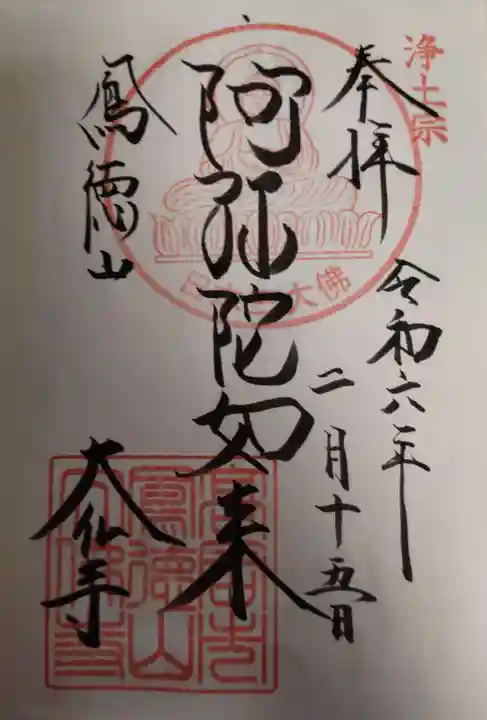 浄土宗
奉拝
令和六年
二月十五日
阿弥陀如来
鳳徳山
大仙寺